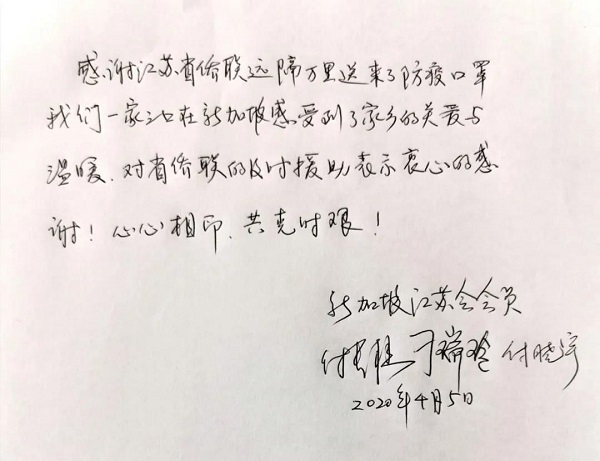 感谢江苏省侨联远隔万里送来了防疫口罩
我们一家三口在新加坡感受到了家乡的关爱与
温暖.对省侨联的及时援助表示衷心的感
谢!心心相印.共克时艰!
新加坡江苏会会员
付 瑞玲 付晓宇
2020年4月5日